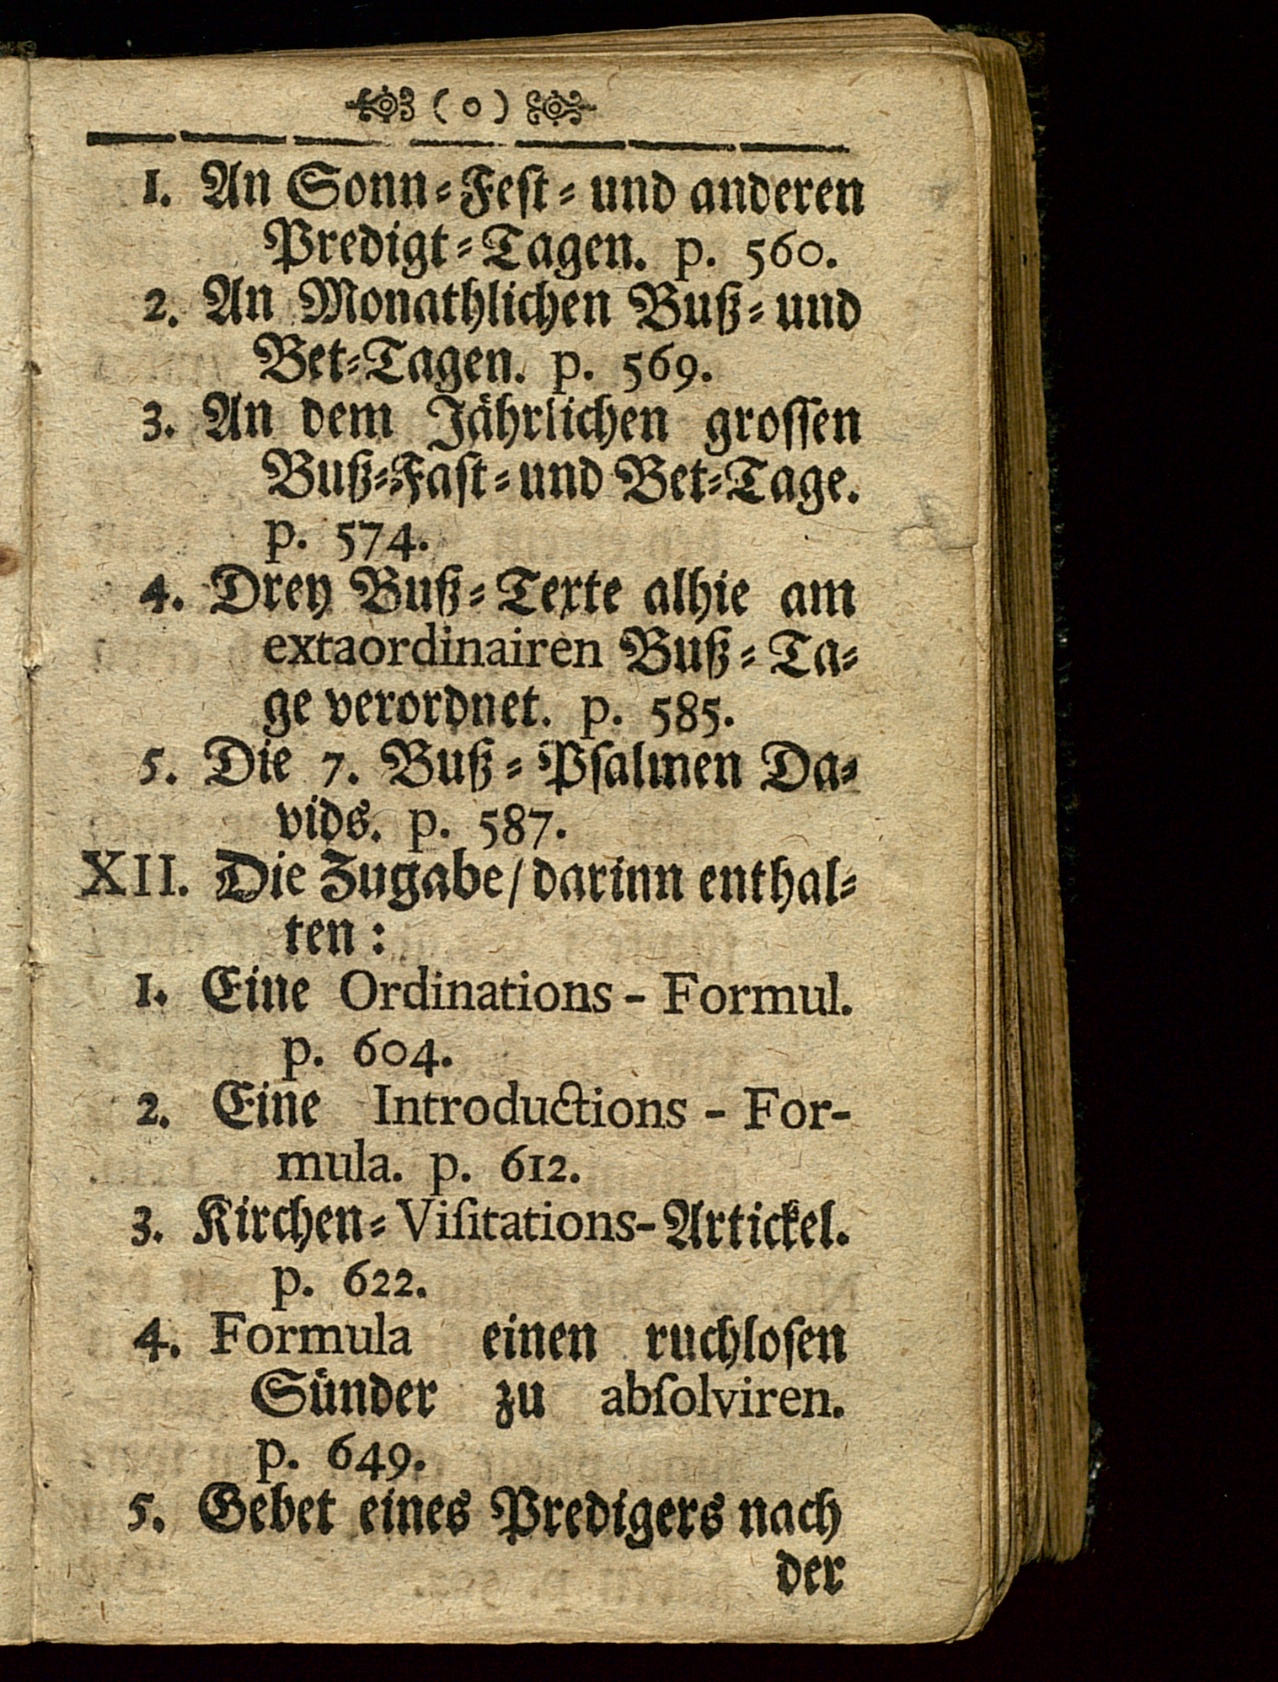 ( o )
1. An Sonn-Fest- und anderen
Predigt-Tagen. p. 560.
2. An Monathlichen Buß- und
Bet-Tagen. p. 569.
3. An dem Jährlichen grossen
Buß-Fast- und Bet-Tage.
p. 574.
4. Drey Buß-Texte alhie am
extaordinairen Buß-Ta-
ge verordnet. p. 585.
5. Die 7. Buß-Psalmen Da-
vids. p. 587.
XII. Die Zugabe/ darinn enthal-
ten:
1. Eine Ordinations-Formul.
p. 604.
2. Eine Introductions-For-
mula. p. 612.
3. Kirchen-Visitations-Artickel.
p. 622.
4. Formula einen ruchlosen
Sünder zu absolviren.
p. 649.
5. Gebet eines Predigers nach
der